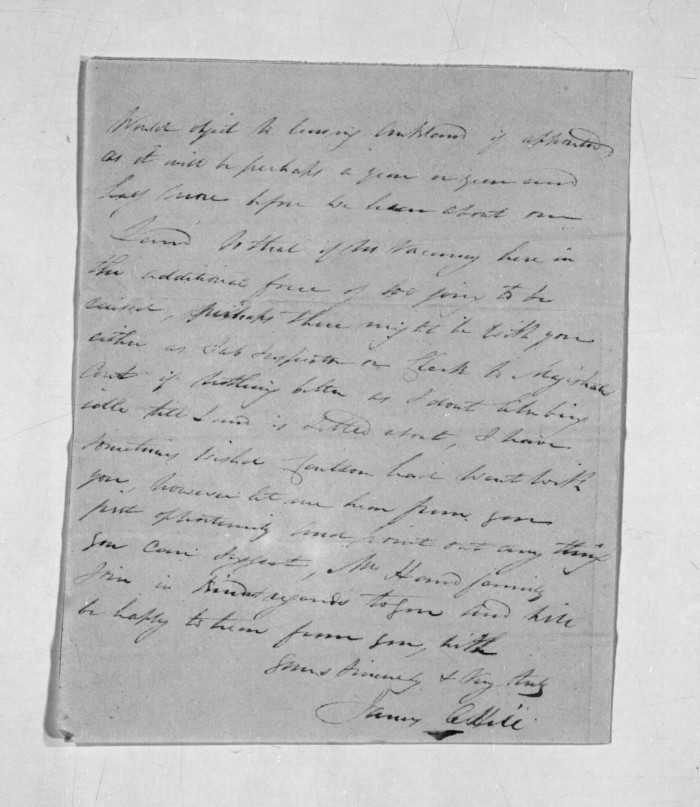 Would object to leaving Auckland if appointed
as it will be perhaps a year or year and
half more before we hear about our
Land is that if no vacancy here in
the additional force of 100 going to be
raised, perhaps there might be with you
either as Sub Inspector or Clerk to Magistrate
Court if nothing better as I dont like being
idle till Land is settled about, I have
sometimes wished Coulson had went with
you, however let me hear from you
first opportunity and point out any thing
you can suggest, Mr family
Join in kind regards to you and will
be happy to hear from you, with
yours Sincerely & Very truly
James